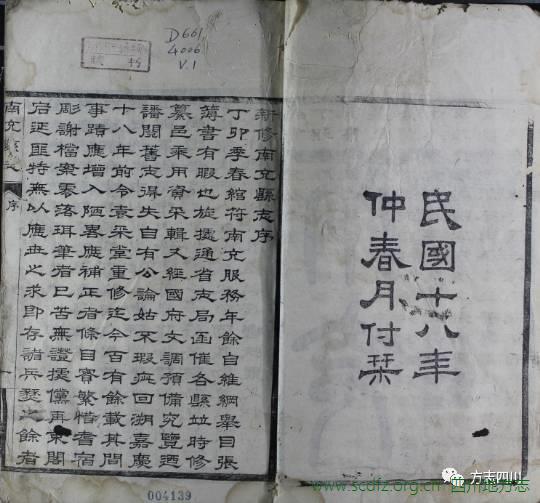 民國十八年
仲春月付栞
D661
4006
V.1
新修南充縣志序
丁卯季春綰符南充服務年餘自維綱舉目張
簿書有暇也旋接通省志局函催各縣並時修
纂邑乘用資采輯又經國府文調預備究覽迺
譒閱舊志得失自有公論姑不瑕疵回溯嘉慶
十八年前令袁采堂重修迄今百有餘載其間
事蹟應增入陋畧應補正者條目實繁惜耆宿
彫謝檔案零落珥筆者已苦無證據儻再束閣
宕延匪特無以應世之求即存諸兵燹之餘者
南充縣志 序
004139
方志四川
www.scdfz.org.cn 四川地方志